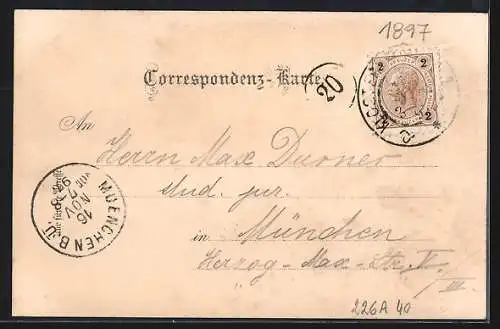 1897
2 2
2
Correspondenz-Karte
20
An
Herrn Max Durner
stud. jur.
MUENCHEN B.Ü.
16 NOV
in München
Herzog-Max-Str.
III
226A 40